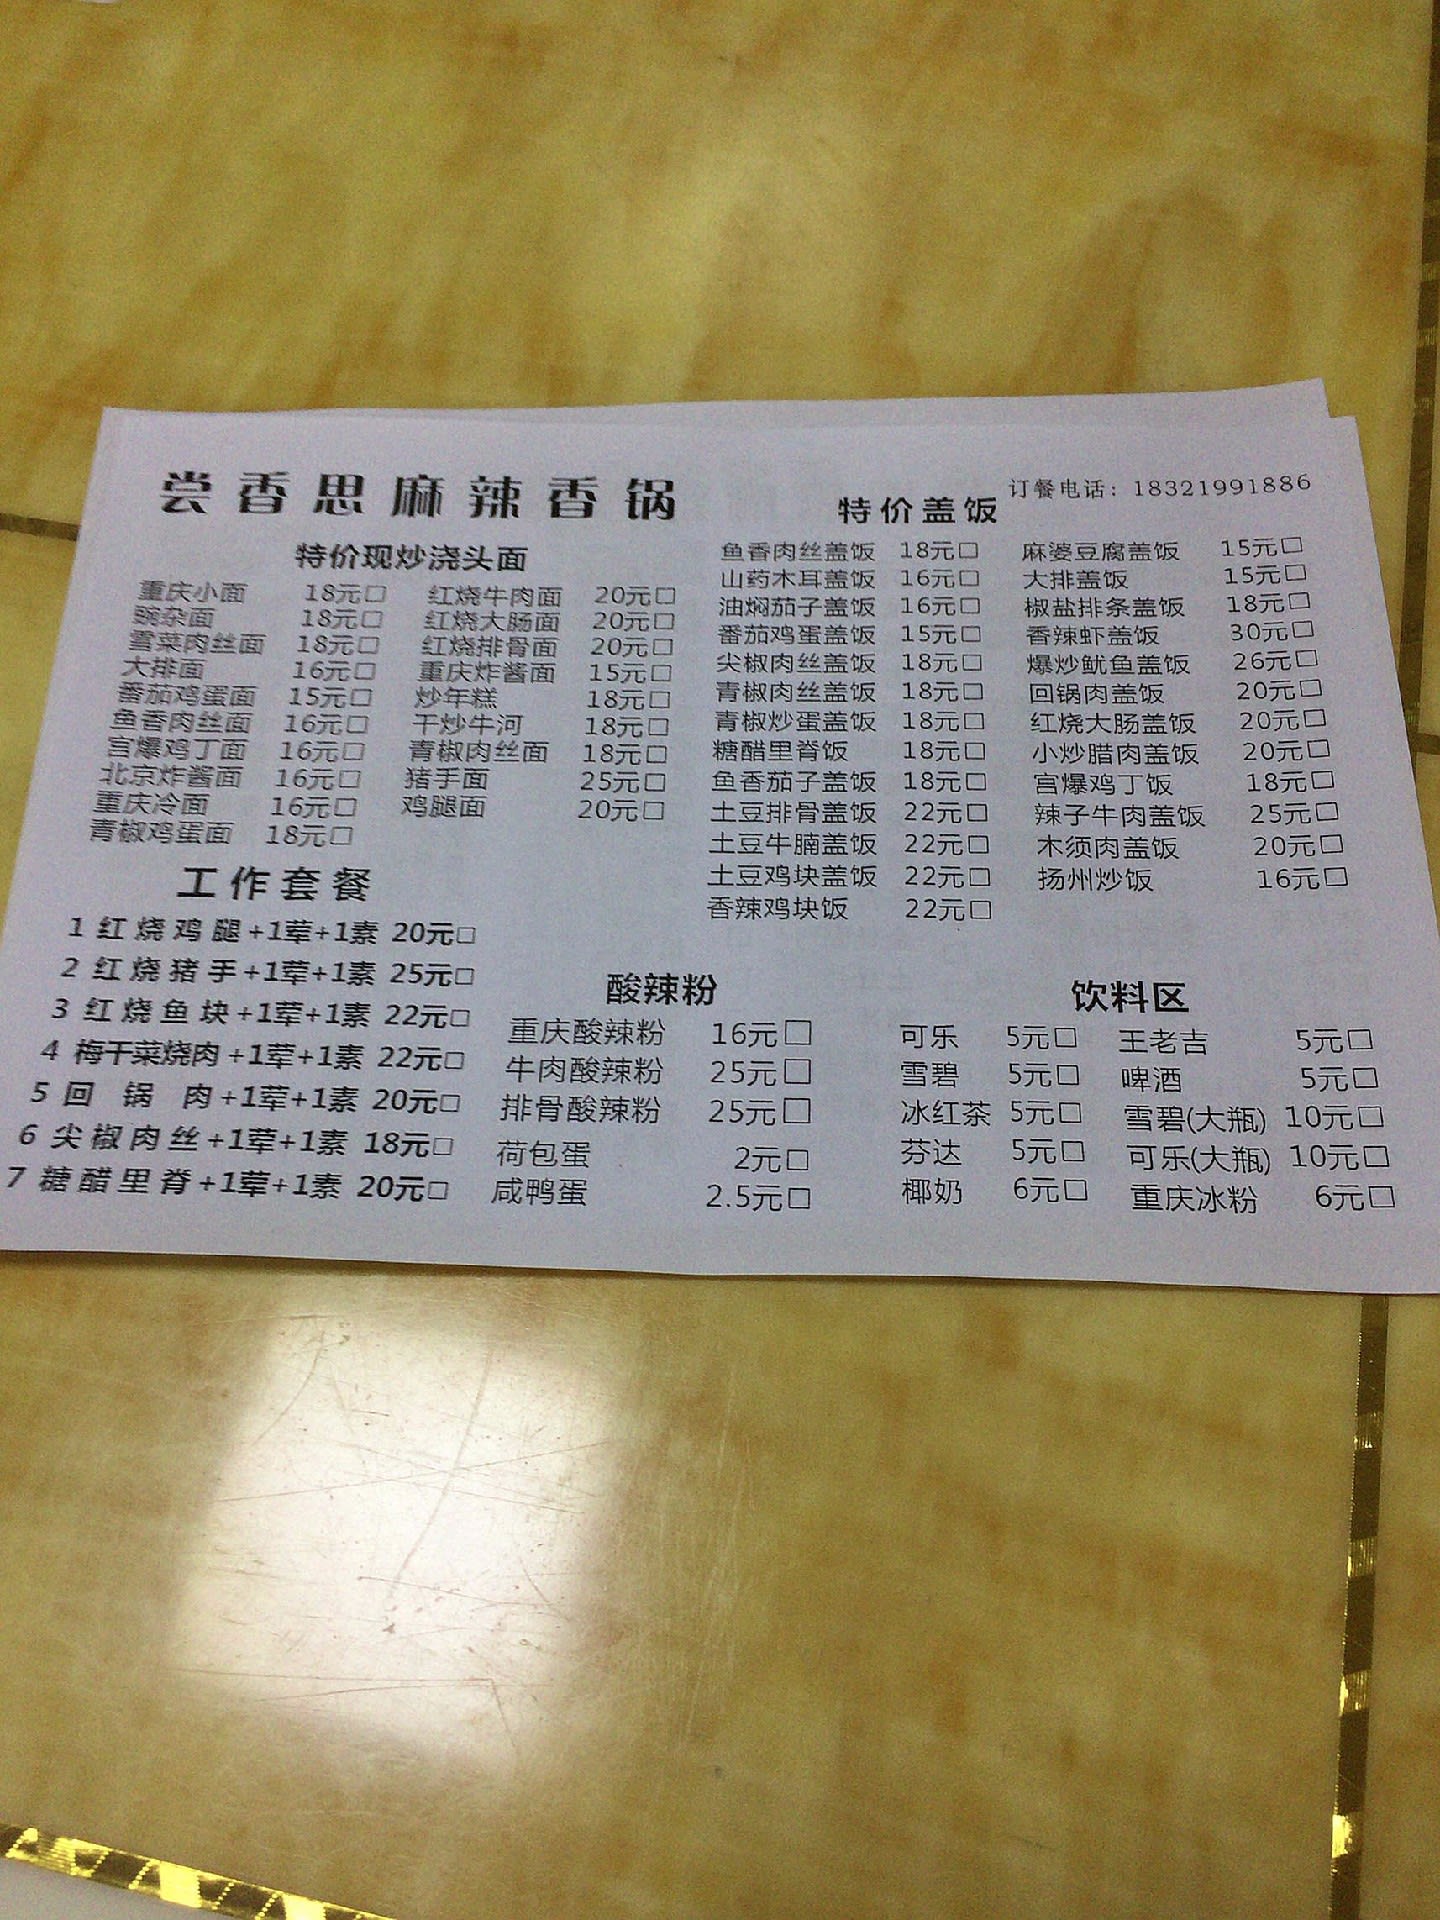 尝香思麻辣香锅
订餐电话：18321991886
特价现炒浇头面
重庆小面 18元□ 红烧牛肉面 20元□
豌杂面 18元□ 红烧大肠面 20元□
雪菜肉丝面 18元□ 红烧排骨面 20元□
大排面 16元□ 重庆炸酱面 15元□
番茄鸡蛋面 15元□ 炒年糕 18元□
鱼香肉丝面 16元□ 干炒牛河 18元□
宫爆鸡丁面 16元□ 青椒肉丝面 18元□
北京炸酱面 16元□ 猪手面 25元□
重庆冷面 16元□ 鸡腿面 20元□
青椒鸡蛋面 18元□
特价盖饭
鱼香肉丝盖饭 18元□ 麻婆豆腐盖饭 15元□
山药木耳盖饭 16元□ 大排盖饭 15元□
油焖茄子盖饭 16元□ 椒盐排条盖饭 18元□
番茄鸡蛋盖饭 15元□ 香辣虾盖饭 30元□
尖椒肉丝盖饭 18元□ 爆炒鱿鱼盖饭 26元□
青椒肉丝盖饭 18元□ 回锅肉盖饭 20元□
青椒炒蛋盖饭 18元□ 红烧大肠盖饭 20元□
糖醋里脊饭 18元□ 小炒腊肉盖饭 20元□
鱼香茄子盖饭 18元□ 宫爆鸡丁饭 18元□
土豆排骨盖饭 22元□ 辣子牛肉盖饭 25元□
土豆牛腩盖饭 22元□ 木须肉盖饭 20元□
土豆鸡块盖饭 22元□ 扬州炒饭 16元□
香辣鸡块饭 22元□
工作套餐
1 红烧鸡腿+1荤+1素 20元□
2 红烧猪手+1荤+1素 25元□
3 红烧鱼块+1荤+1素 22元□
4 梅干菜烧肉+1荤+1素 22元□
5 回锅肉+1荤+1素 20元□
6 尖椒肉丝+1荤+1素 18元□
7 糖醋里脊+1荤+1素 20元□
酸辣粉
重庆酸辣粉 16元□
牛肉酸辣粉 25元□
排骨酸辣粉 25元□
荷包蛋 2元□
咸鸭蛋 2.5元□
饮料区
可乐 5元□ 王老吉 5元□
雪碧 5元□ 啤酒 5元□
冰红茶 5元□ 雪碧(大瓶) 10元□
芬达 5元□ 可乐(大瓶) 10元□
椰奶 6元□ 重庆冰粉 6元□